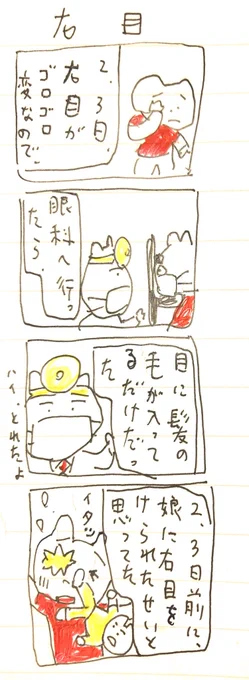 右目
2、3日、
右目が
ゴロゴロ
変なので
眼科へ行っ
たら、
目に髪の
毛が入って
るだけだっ
た
ハイ、とれたよ
2、3日前に、
娘に右目を
けられたせいと
思ってた
イタッ